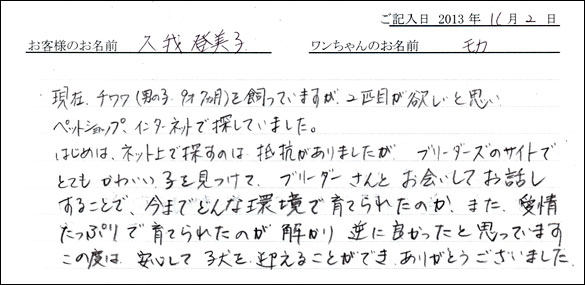 ご記入日 2013 年 11 月 2 日
お客様のお名前 久我 登美子 ワンちゃんのお名前 モカ
現在、チワワ(男の子 9才7ヵ月)を飼っていますが、2匹目が欲しいと思い
ペットショップ、インターネットで探していました。
はじめは、ネット上で探すのは 抵抗がありましたが ブリーダーズのサイトで
とても かわいい 子を見つけて、ブリーダー さんと お会いして お話し
することで、今までどんな環境で育てられたのか、また、愛情
たっぷりで育てられたのが 解かり 逆に良かったと思っています
この度は 安心して 子犬を 迎えることができ ありがとうございました。